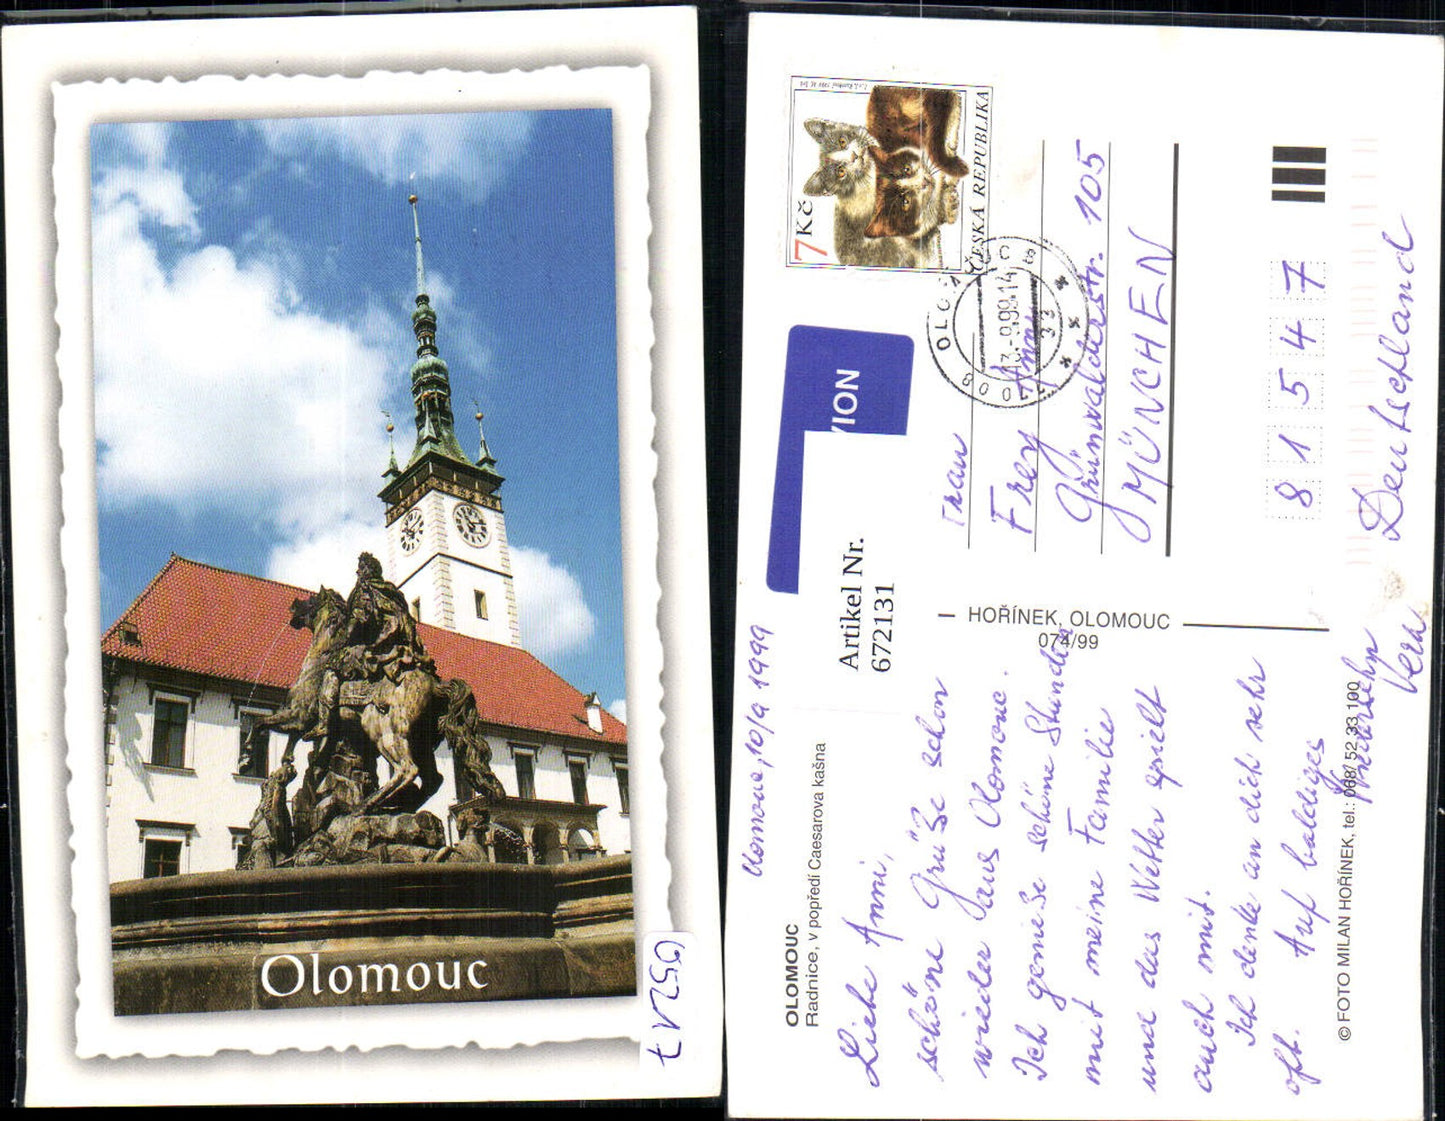 Olomouc
OLOMOUC
Radnice, v popředí Caesarova kašna
Olomouc, 10/9 1999
Liebe Anni,
schöne Grüße schon
wieder aus Olomouc.
Ich genieße schöne Stunden
mit meine Familie
und das Wetter spielt
auch mit.
Ich denke an dich sehr
oft. Auf baldiges
Věra
© FOTO MILAN HOŘÍNEK, tel.: 068/ 52 33 100
HOŘÍNEK, OLOMOUC
074/99
Artikel Nr.
672131
VION
7 Kč
ČESKA REPUBLIKA
Frau
Frey Anni
Grünwalderstr. 105
MÜNCHEN
8 1 5 4 7
Deutschland